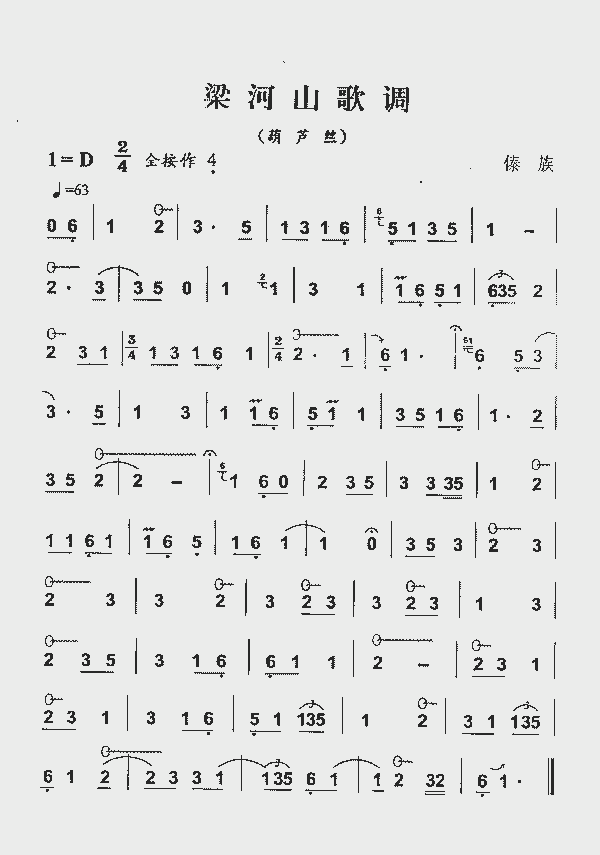 梁河山歌调
（葫芦丝）
1=D 2/4 全按作 4̣ 傣族
♩=63
0 6̣ | 1 2 | 3 · 5 | 1 3 1 6̣ | 6 5̣ 1 3 5 | 1 – |
2 · 3 | 3 5 0 | 1 2 1 | 3 1 | 1 6̣ 5̣ 1 | 6̣35 2 |
2 3 1 | 3/4 1 3 1 6̣ 1 | 2/4 2 · 1 | 6̣ 1 · | 61 6̣ 5̣ 3 |
3 · 5 | 1 3 | 1 1 6̣ | 5̣ 1 1 | 3 5 1 6̣ | 1 · 2 |
3 5 2 | 2 – | 6 1 6̣ 0 | 2 3 5 | 3 3 35 | 1 2 |
1 1 6̣ 1 | 1 6̣ 5̣ | 1 6̣ 1 | 1 0 | 3 5 3 | 2 3 |
2 3 | 3 2 | 3 2 3 | 3 2 3 | 1 3 |
2 3 5 | 3 1 6̣ | 6̣ 1 1 | 2 – | 2 3 1 |
2 3 1 | 3 1 6̣ | 5̣ 1 135 | 1 2 | 3 1 135 |
6̣ 1 2 | 2 3 3 1 | 135 6̣ 1 | 1 2 32 | 6̣ 1 · ‖